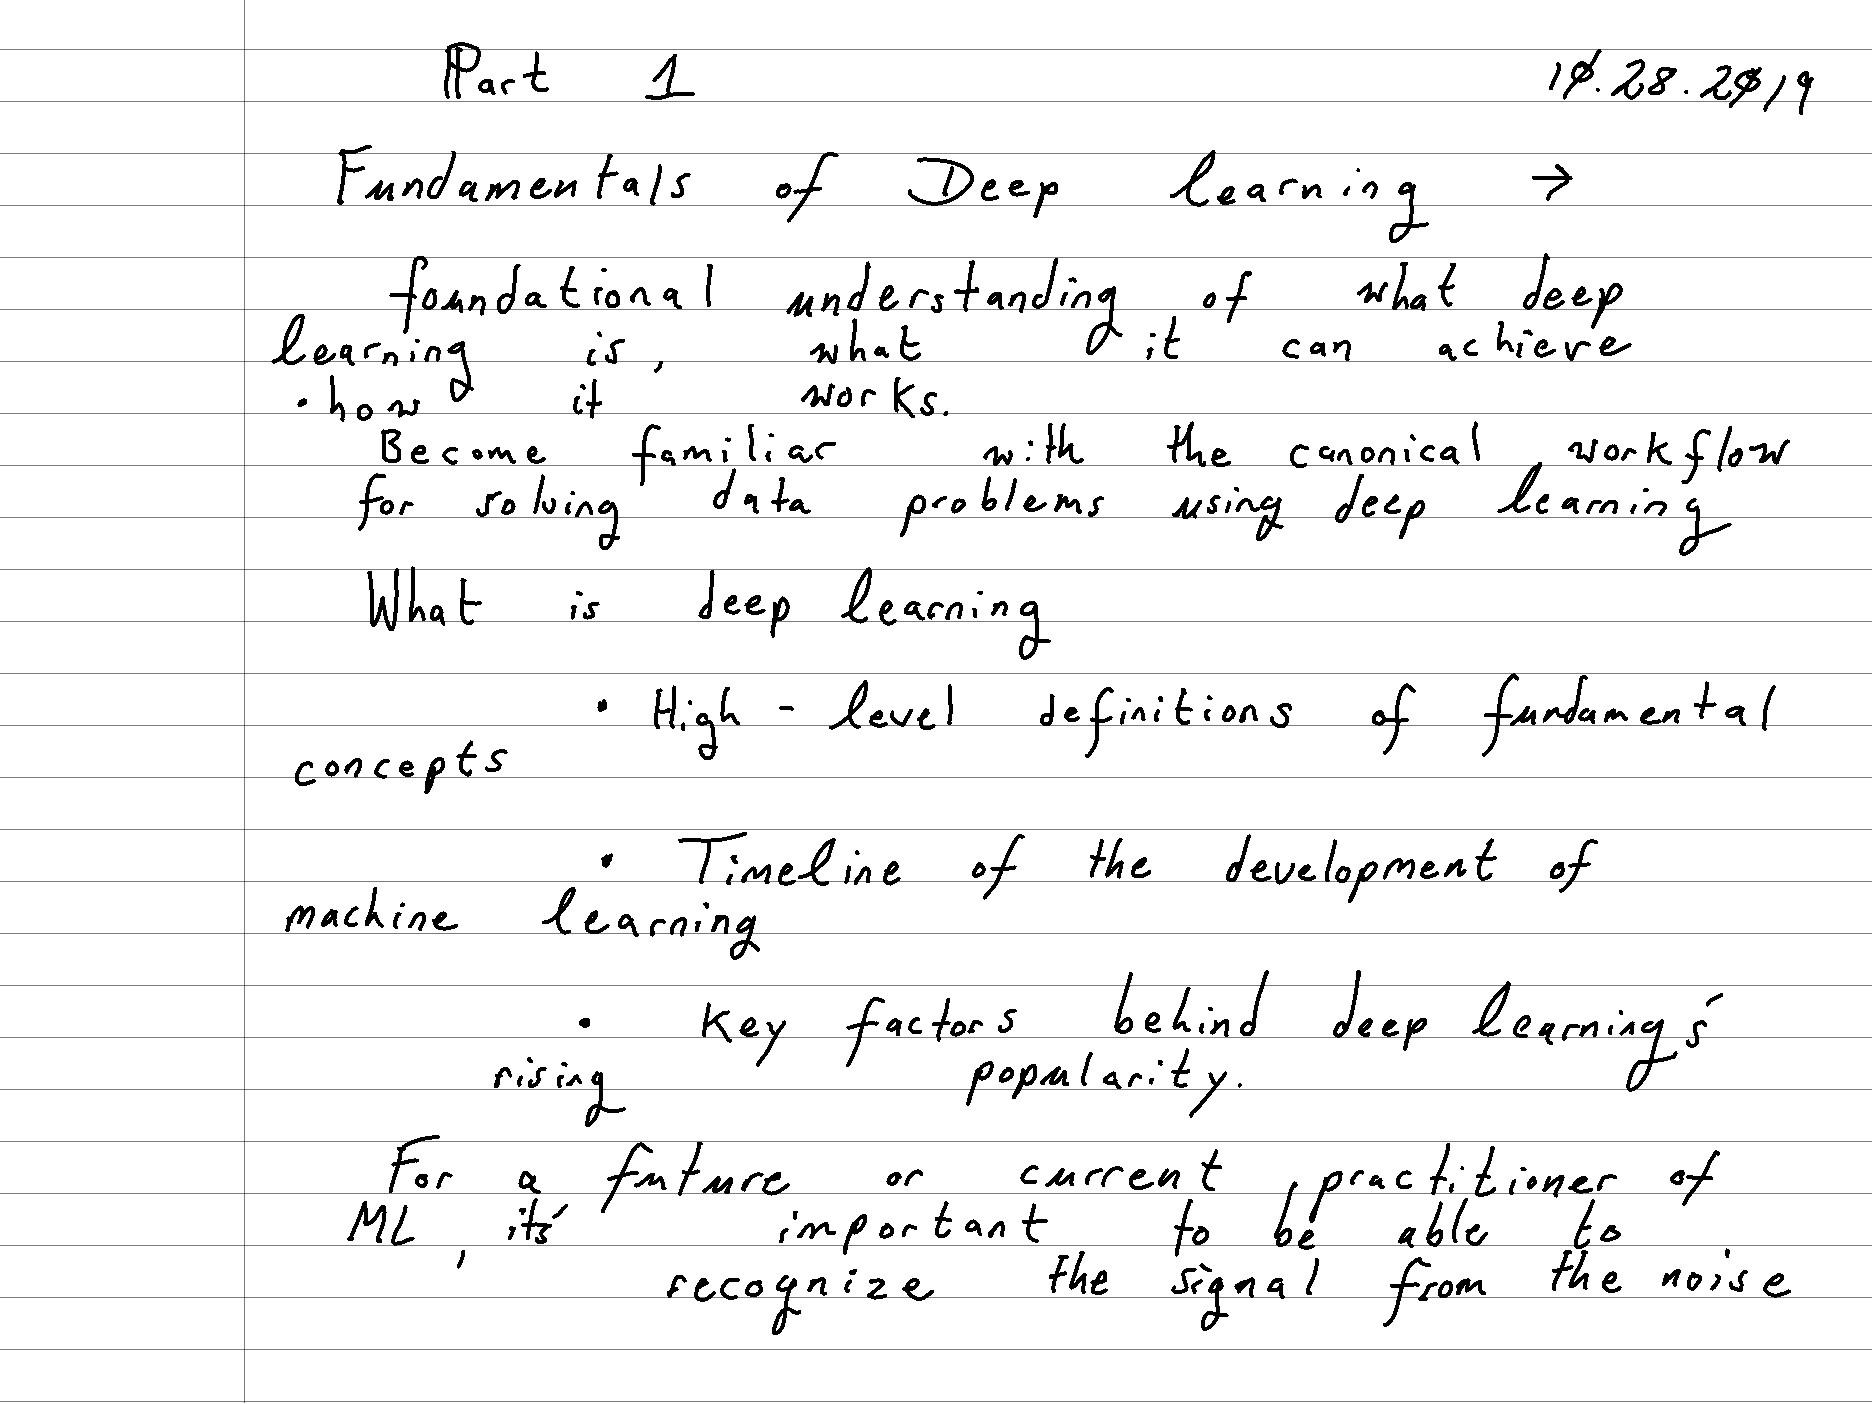 Part 1 10.28.2019
Fundamentals of Deep learning →
foundational understanding of what deep
learning is, what it can achieve
• how it works.
Become familiar with the canonical workflow
for solving data problems using deep learning
What is deep learning
• High-level definitions of fundamental
concepts
• Timeline of the development of
machine learning
• Key factors behind deep learning's
rising popularity.
For a future or current practitioner of
ML, it's important to be able to
recognize the signal from the noise